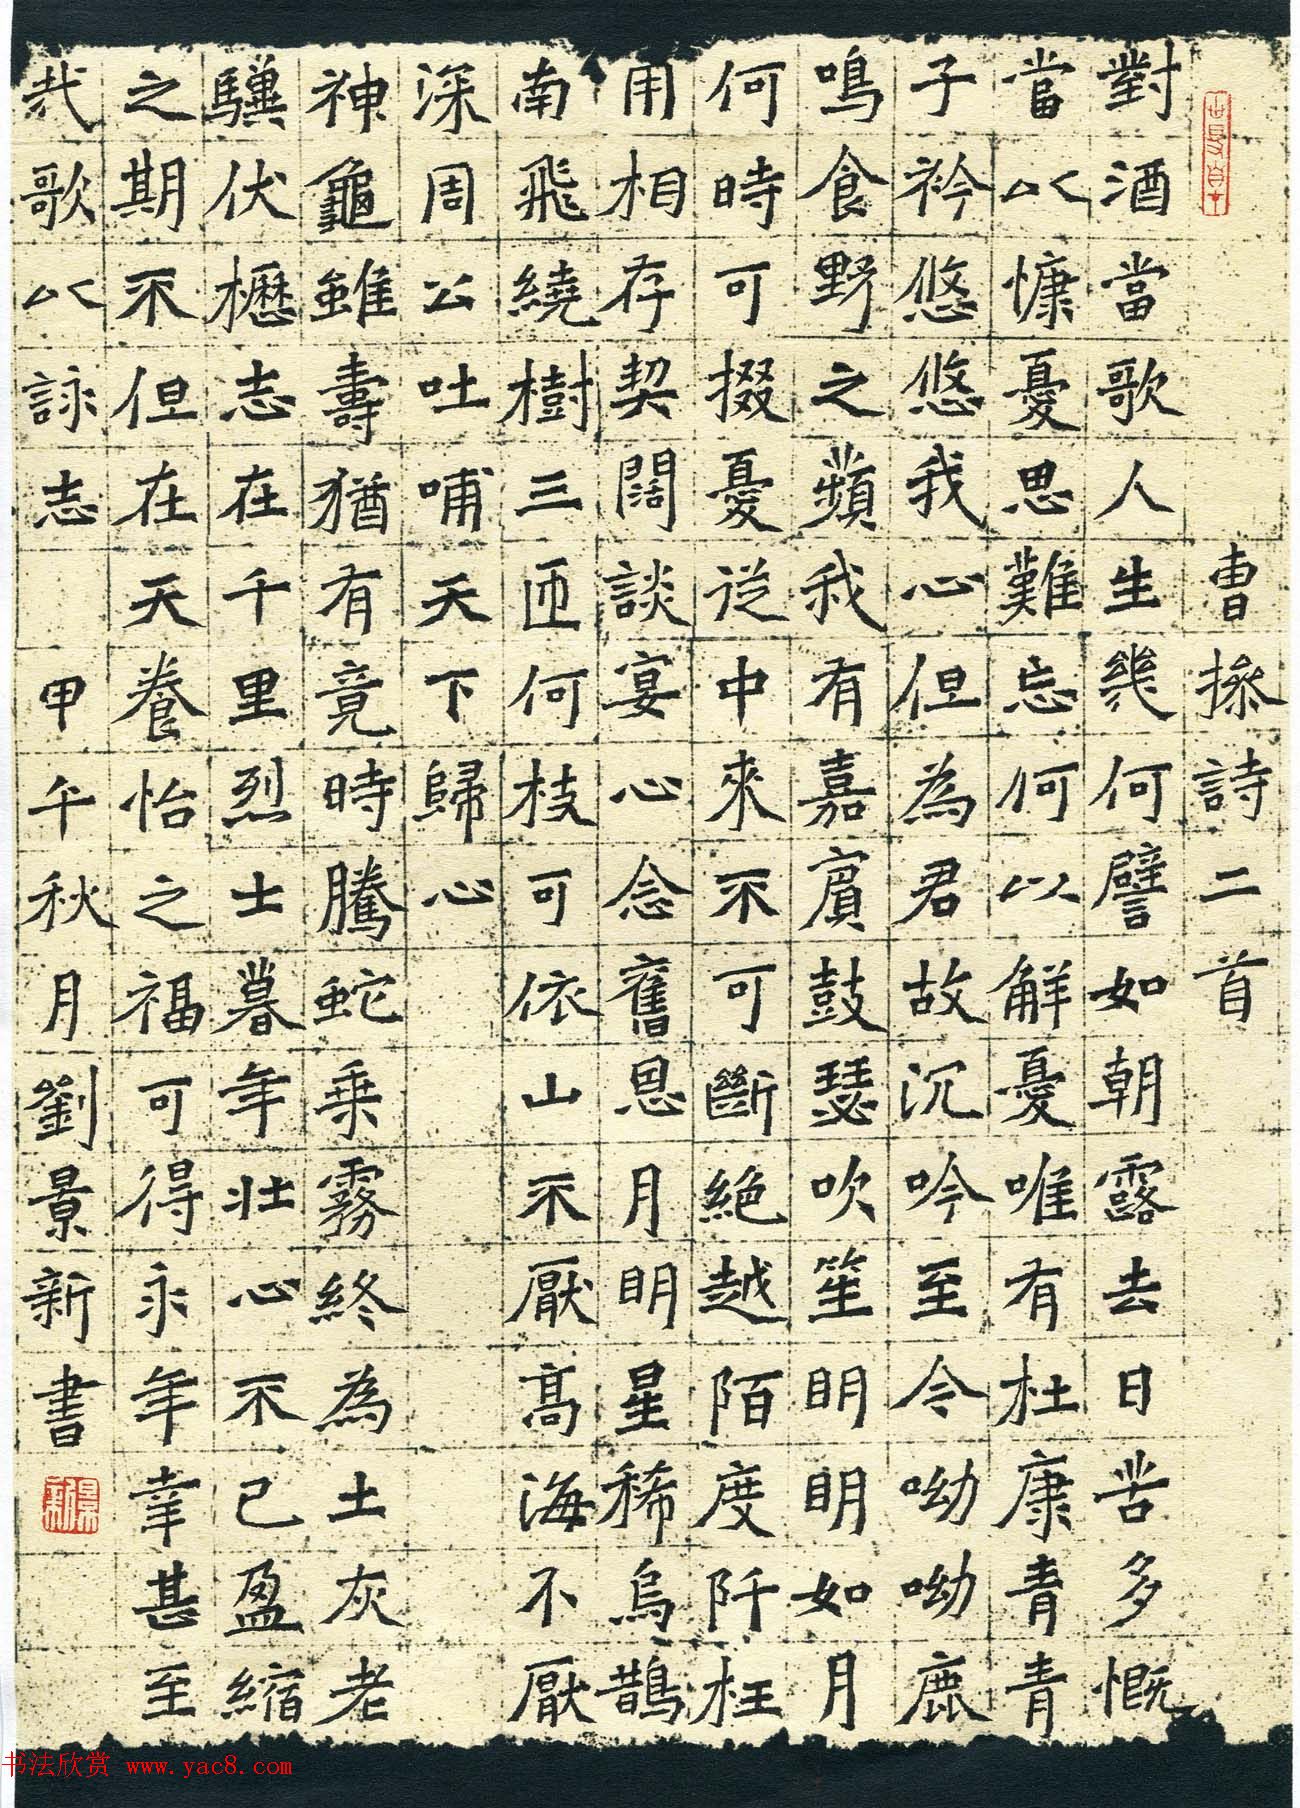 曹操詩二首
對酒當歌人生幾何譬如朝露去日苦多慨
當以慷憂思難忘何以解憂唯有杜康青青
子衿悠悠我心但為君故沉吟至今呦呦鹿
鳴食野之蘋我有嘉賓鼓瑟吹笙明明如月
何時可掇憂從中來不可斷絕越陌度阡枉
用相存契闊談宴心念舊恩月明星稀烏鵲
南飛繞樹三匝何枝可依山不厭高海不厭
深周公吐哺天下歸心
神龜雖壽猶有竟時騰蛇乘霧終為土灰老
驥伏櫪志在千里烈士暮年壯心不已盈縮
之期不但在天養怡之福可得永年幸甚至
哉歌以詠志 甲午秋月劉景新書
景新
书法欣赏 www.yac8.com